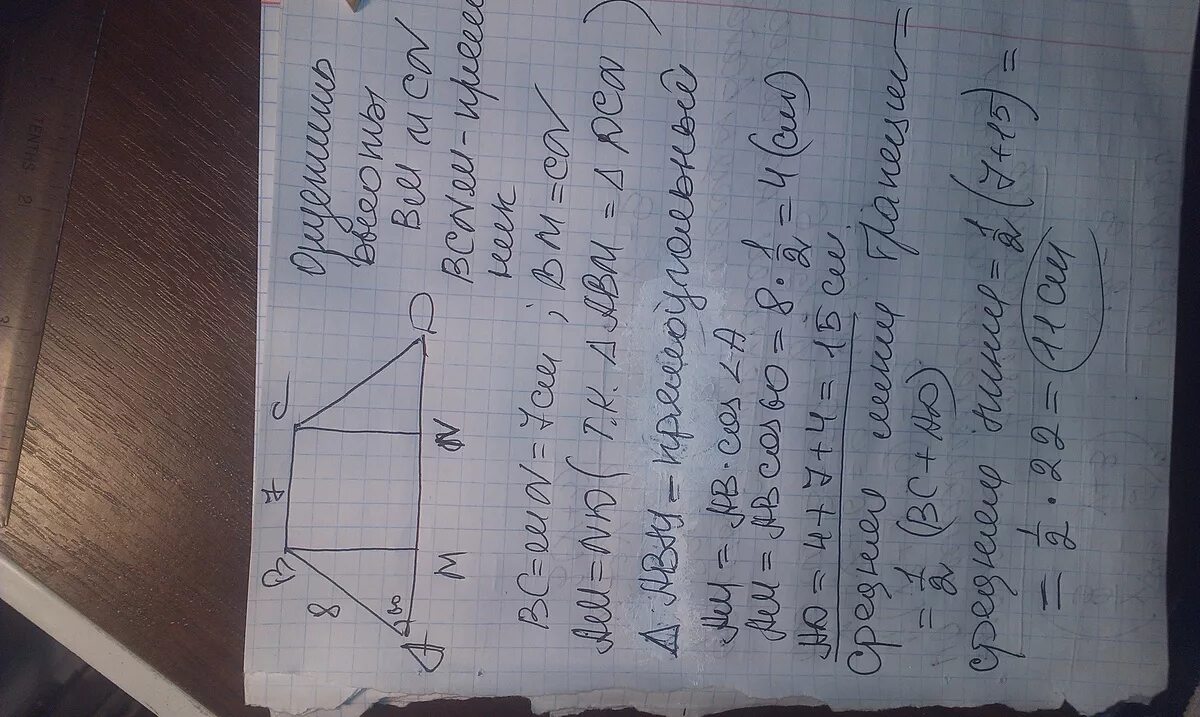 B 7 C
8
60
A M N D
Опустим
высоты
BM и CN
BCNM - прям
ник
BC = MN = 7 см ; BM = CN
AM = ND ( т.к. Δ ABM = Δ DCN )
Δ ABM = прямоугольный
AM = AB · cos ∠A
AM = AB cos 60 = 8 · 1/2 = 4 (см)
AD = 4 + 7 + 4 = 15 см
Средняя линия трапеции =
= 1/2 (BC + AD)
средняя линия = 1/2 (7 + 15) =
= 1/2 · 22 = 11 см
TENTHS 2
3